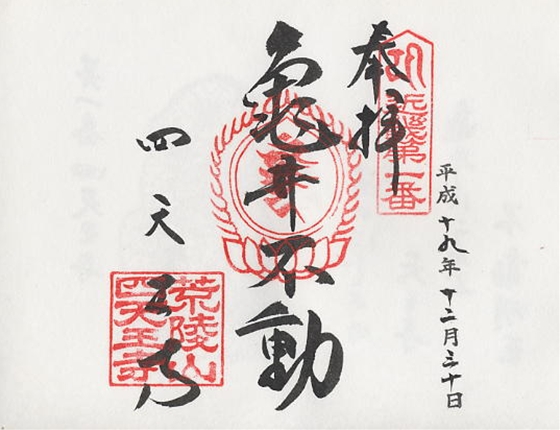 平成十九年十二月三十日
奉拝
近畿第一番
亀井不動
四天王寺
荒陵山
四天王寺